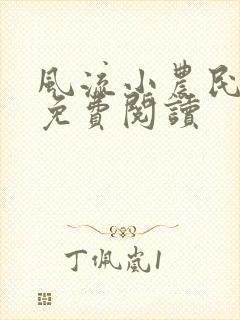 風流小農民
免費閱讀
丁佩嵐1